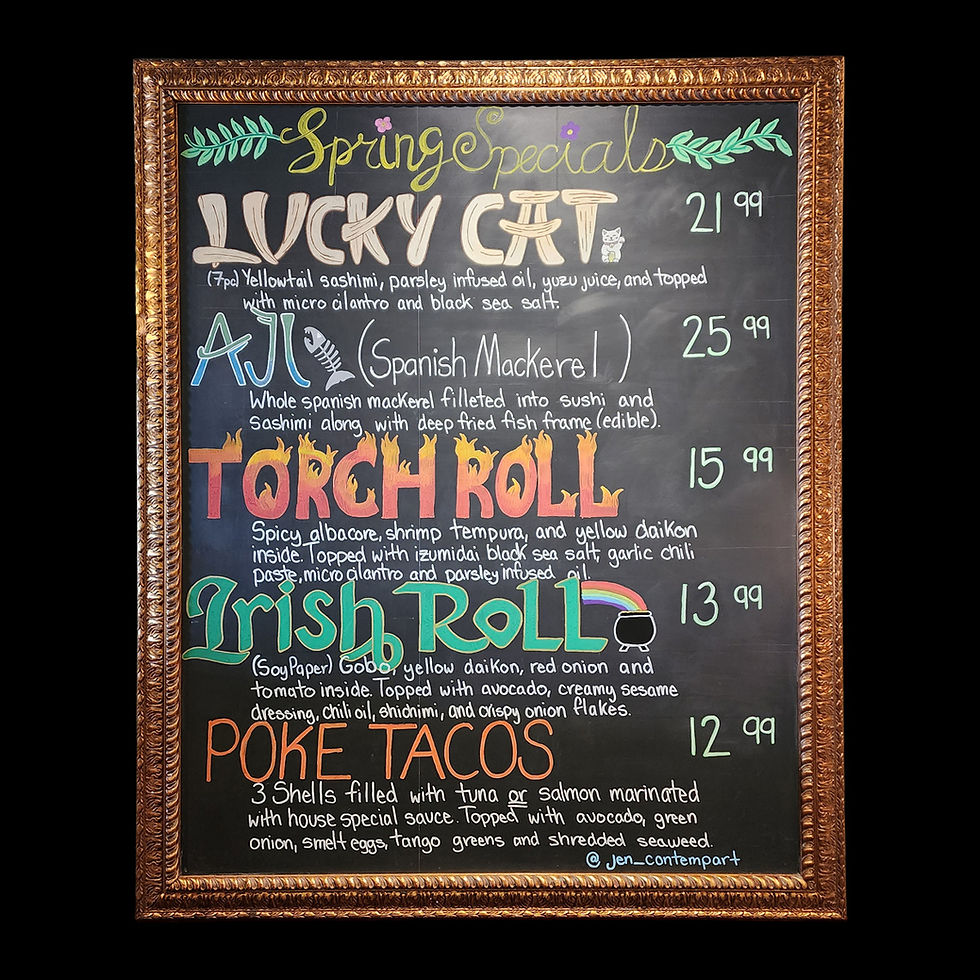 Spring Specials
LUCKY CAT 21 99
(7pc) Yellowtail sashimi, parsley infused oil, yuzu juice, and topped
with micro cilantro and black sea salt.
AJI (Spanish Mackerel) 25 99
Whole spanish mackerel filleted into sushi and
sashimi along with deep fried fish frame (edible).
TORCH ROLL 15 99
Spicy albacore, shrimp tempura, and yellow daikon
inside. Topped with izumidai black sea salt, garlic chili
paste, micro cilantro and parsley infused oil.
Irish Roll 13 99
(Soy Paper) Gobo, yellow daikon, red onion and
tomato inside. Topped with avocado, creamy sesame
dressing, chili oil, shichimi, and crispy onion flakes.
POKE TACOS 12 99
3 Shells filled with tuna or salmon marinated
with house special sauce. Topped with avocado, green
onion, smelt eggs, tango greens and shredded seaweed.
@jen_contempart